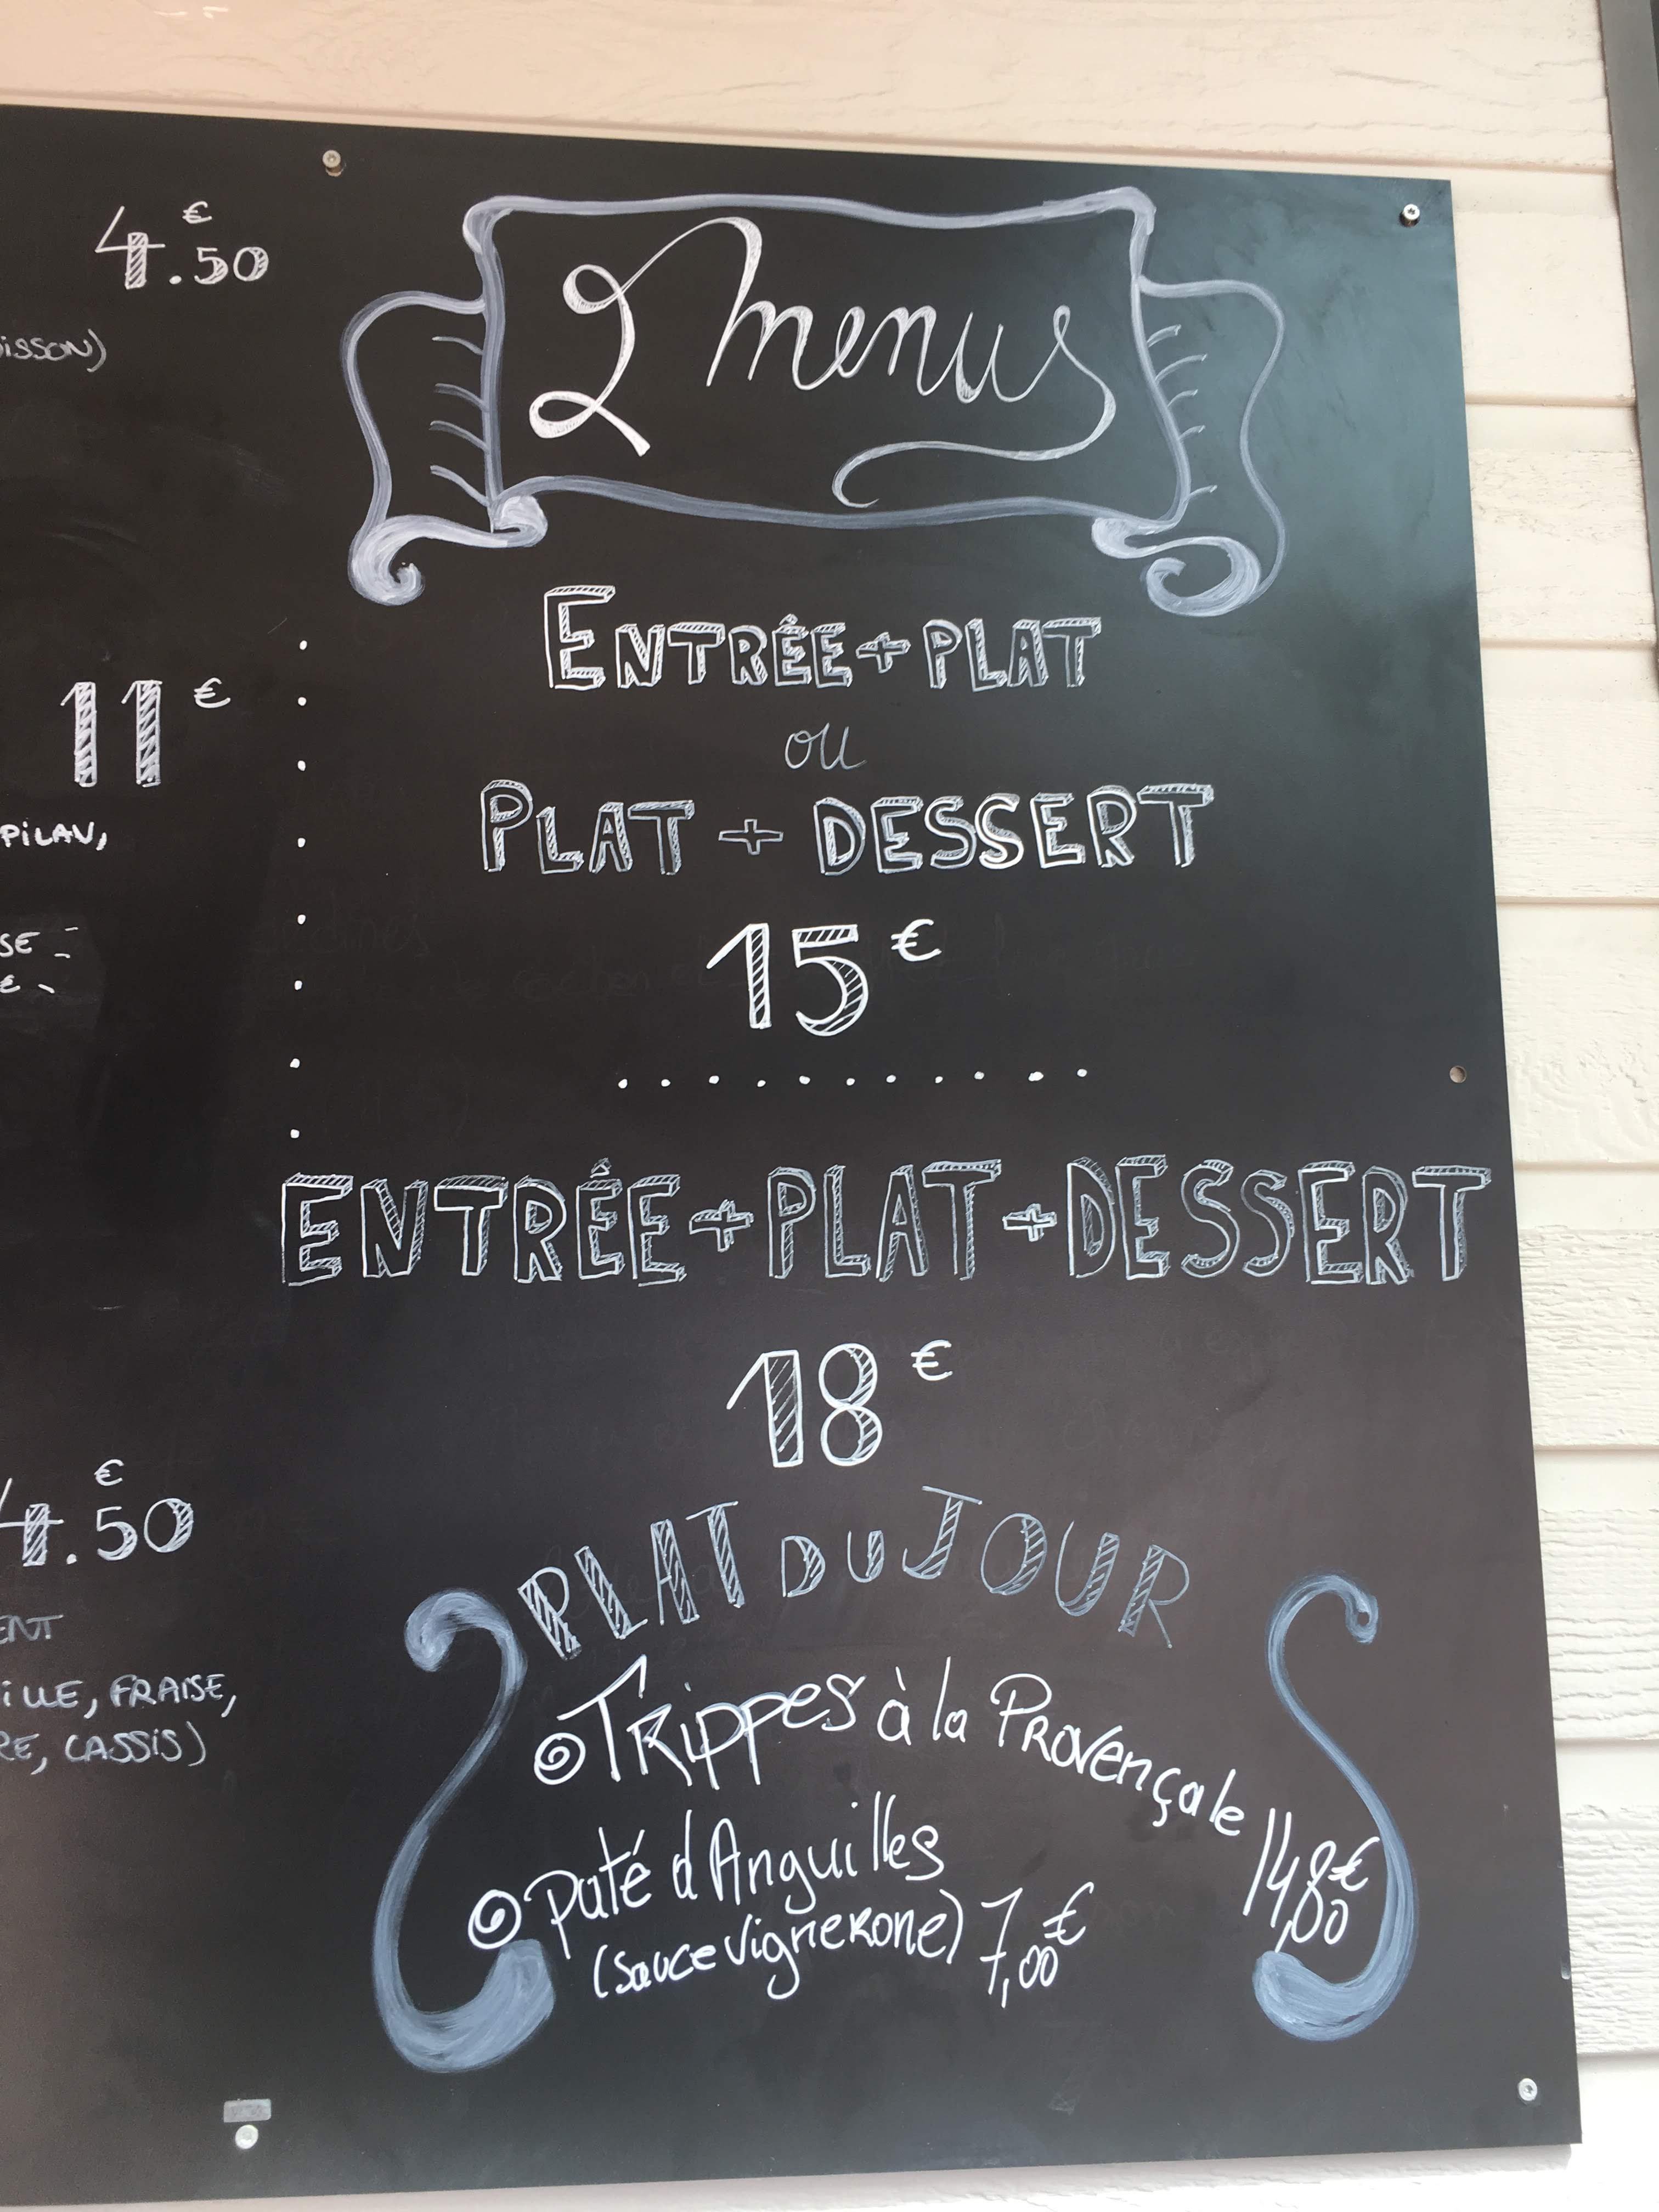 4.50€
11€
PILAV,
4.50€
FRAISE,
CASSIS)
2 menus
ENTRÉE+PLAT
ou
PLAT + DESSERT
15€
ENTRÉE+PLAT+DESSERT
18€
PLAT DU JOUR
TRippes à la PROVençale 14,80€
pâté d'Anguilles
(sauce vigneRone) 7,00€